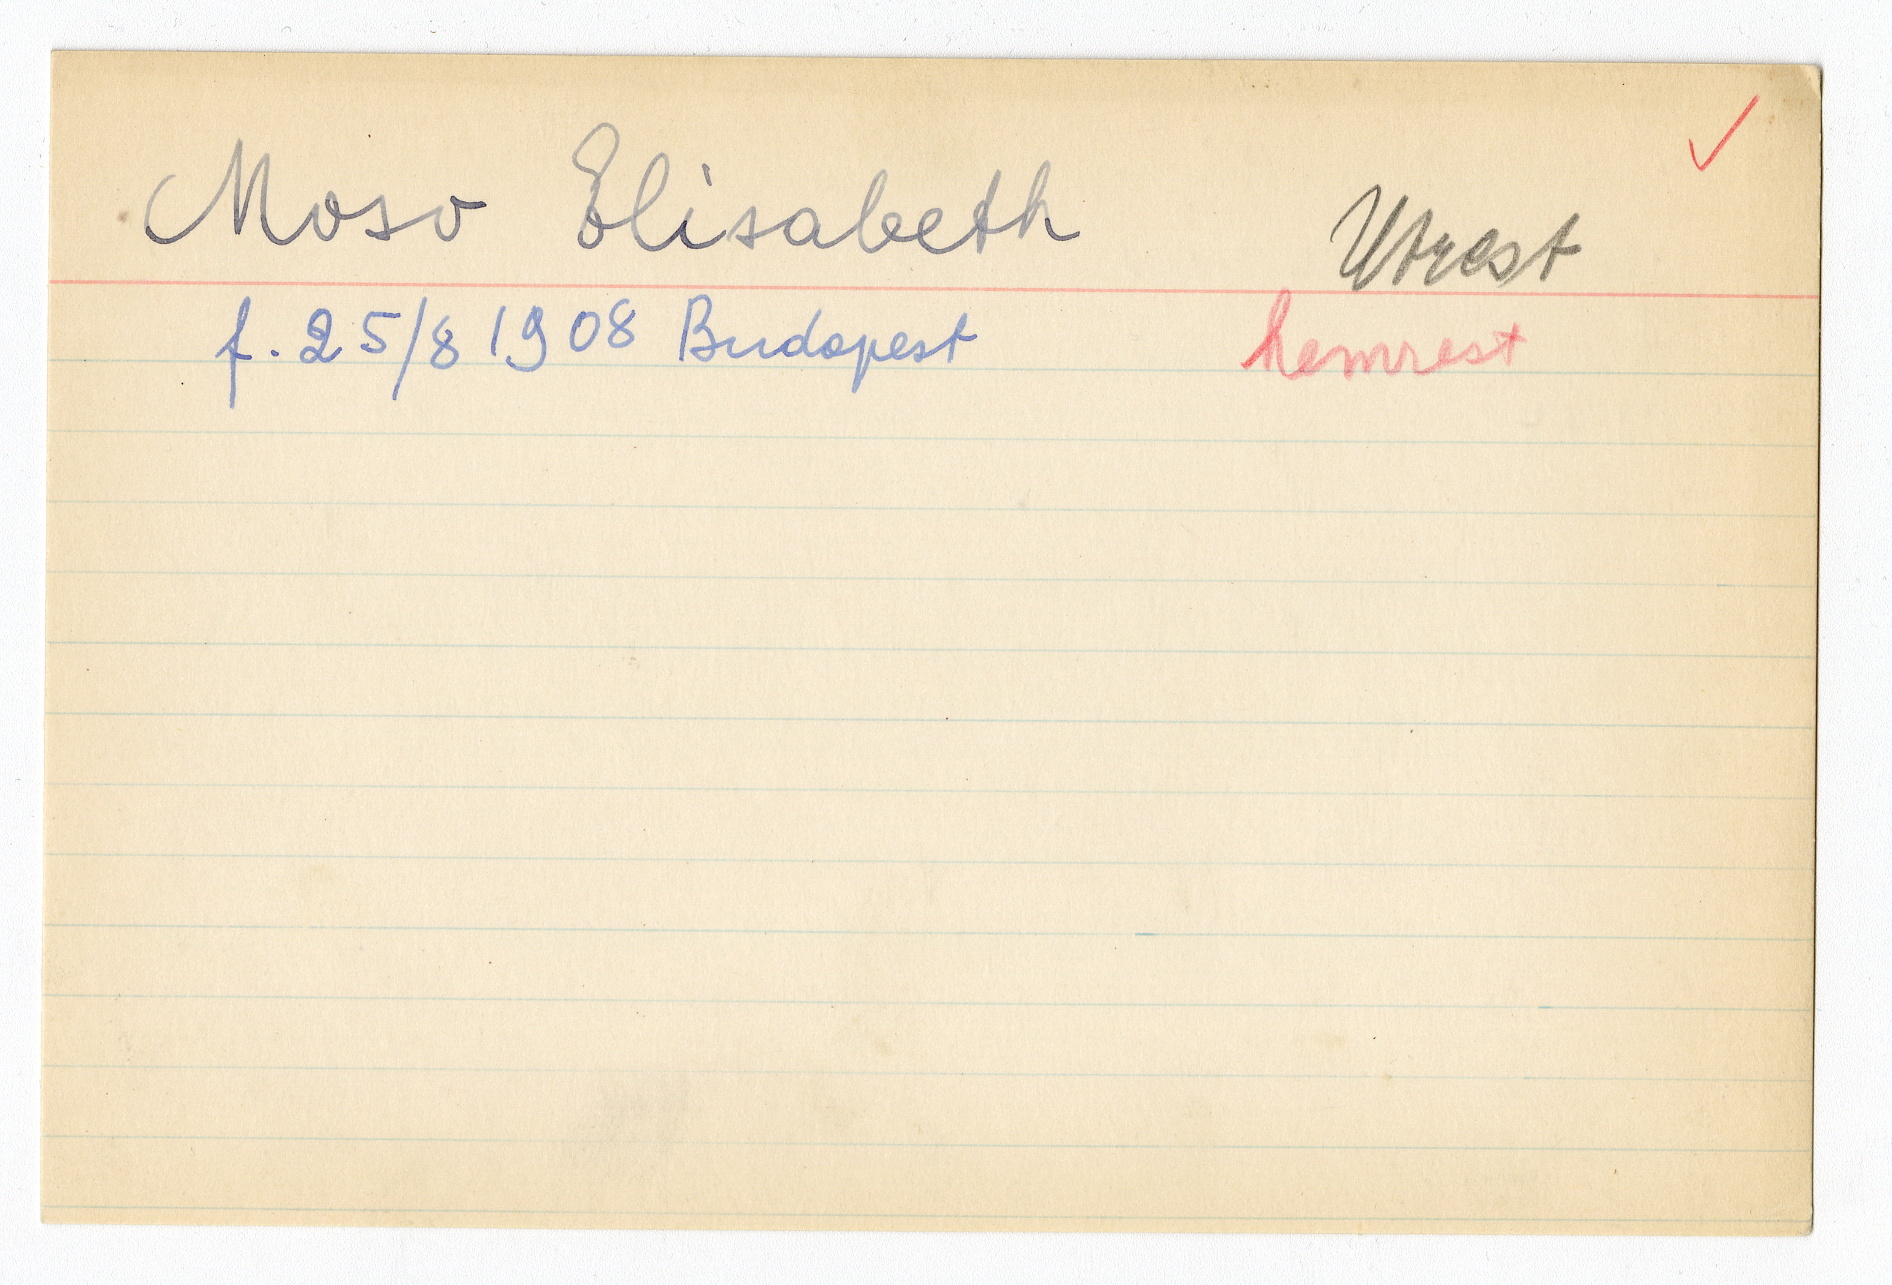 Moso Elisabeth Utrest
f. 25/8 1908 Budapest hemrest